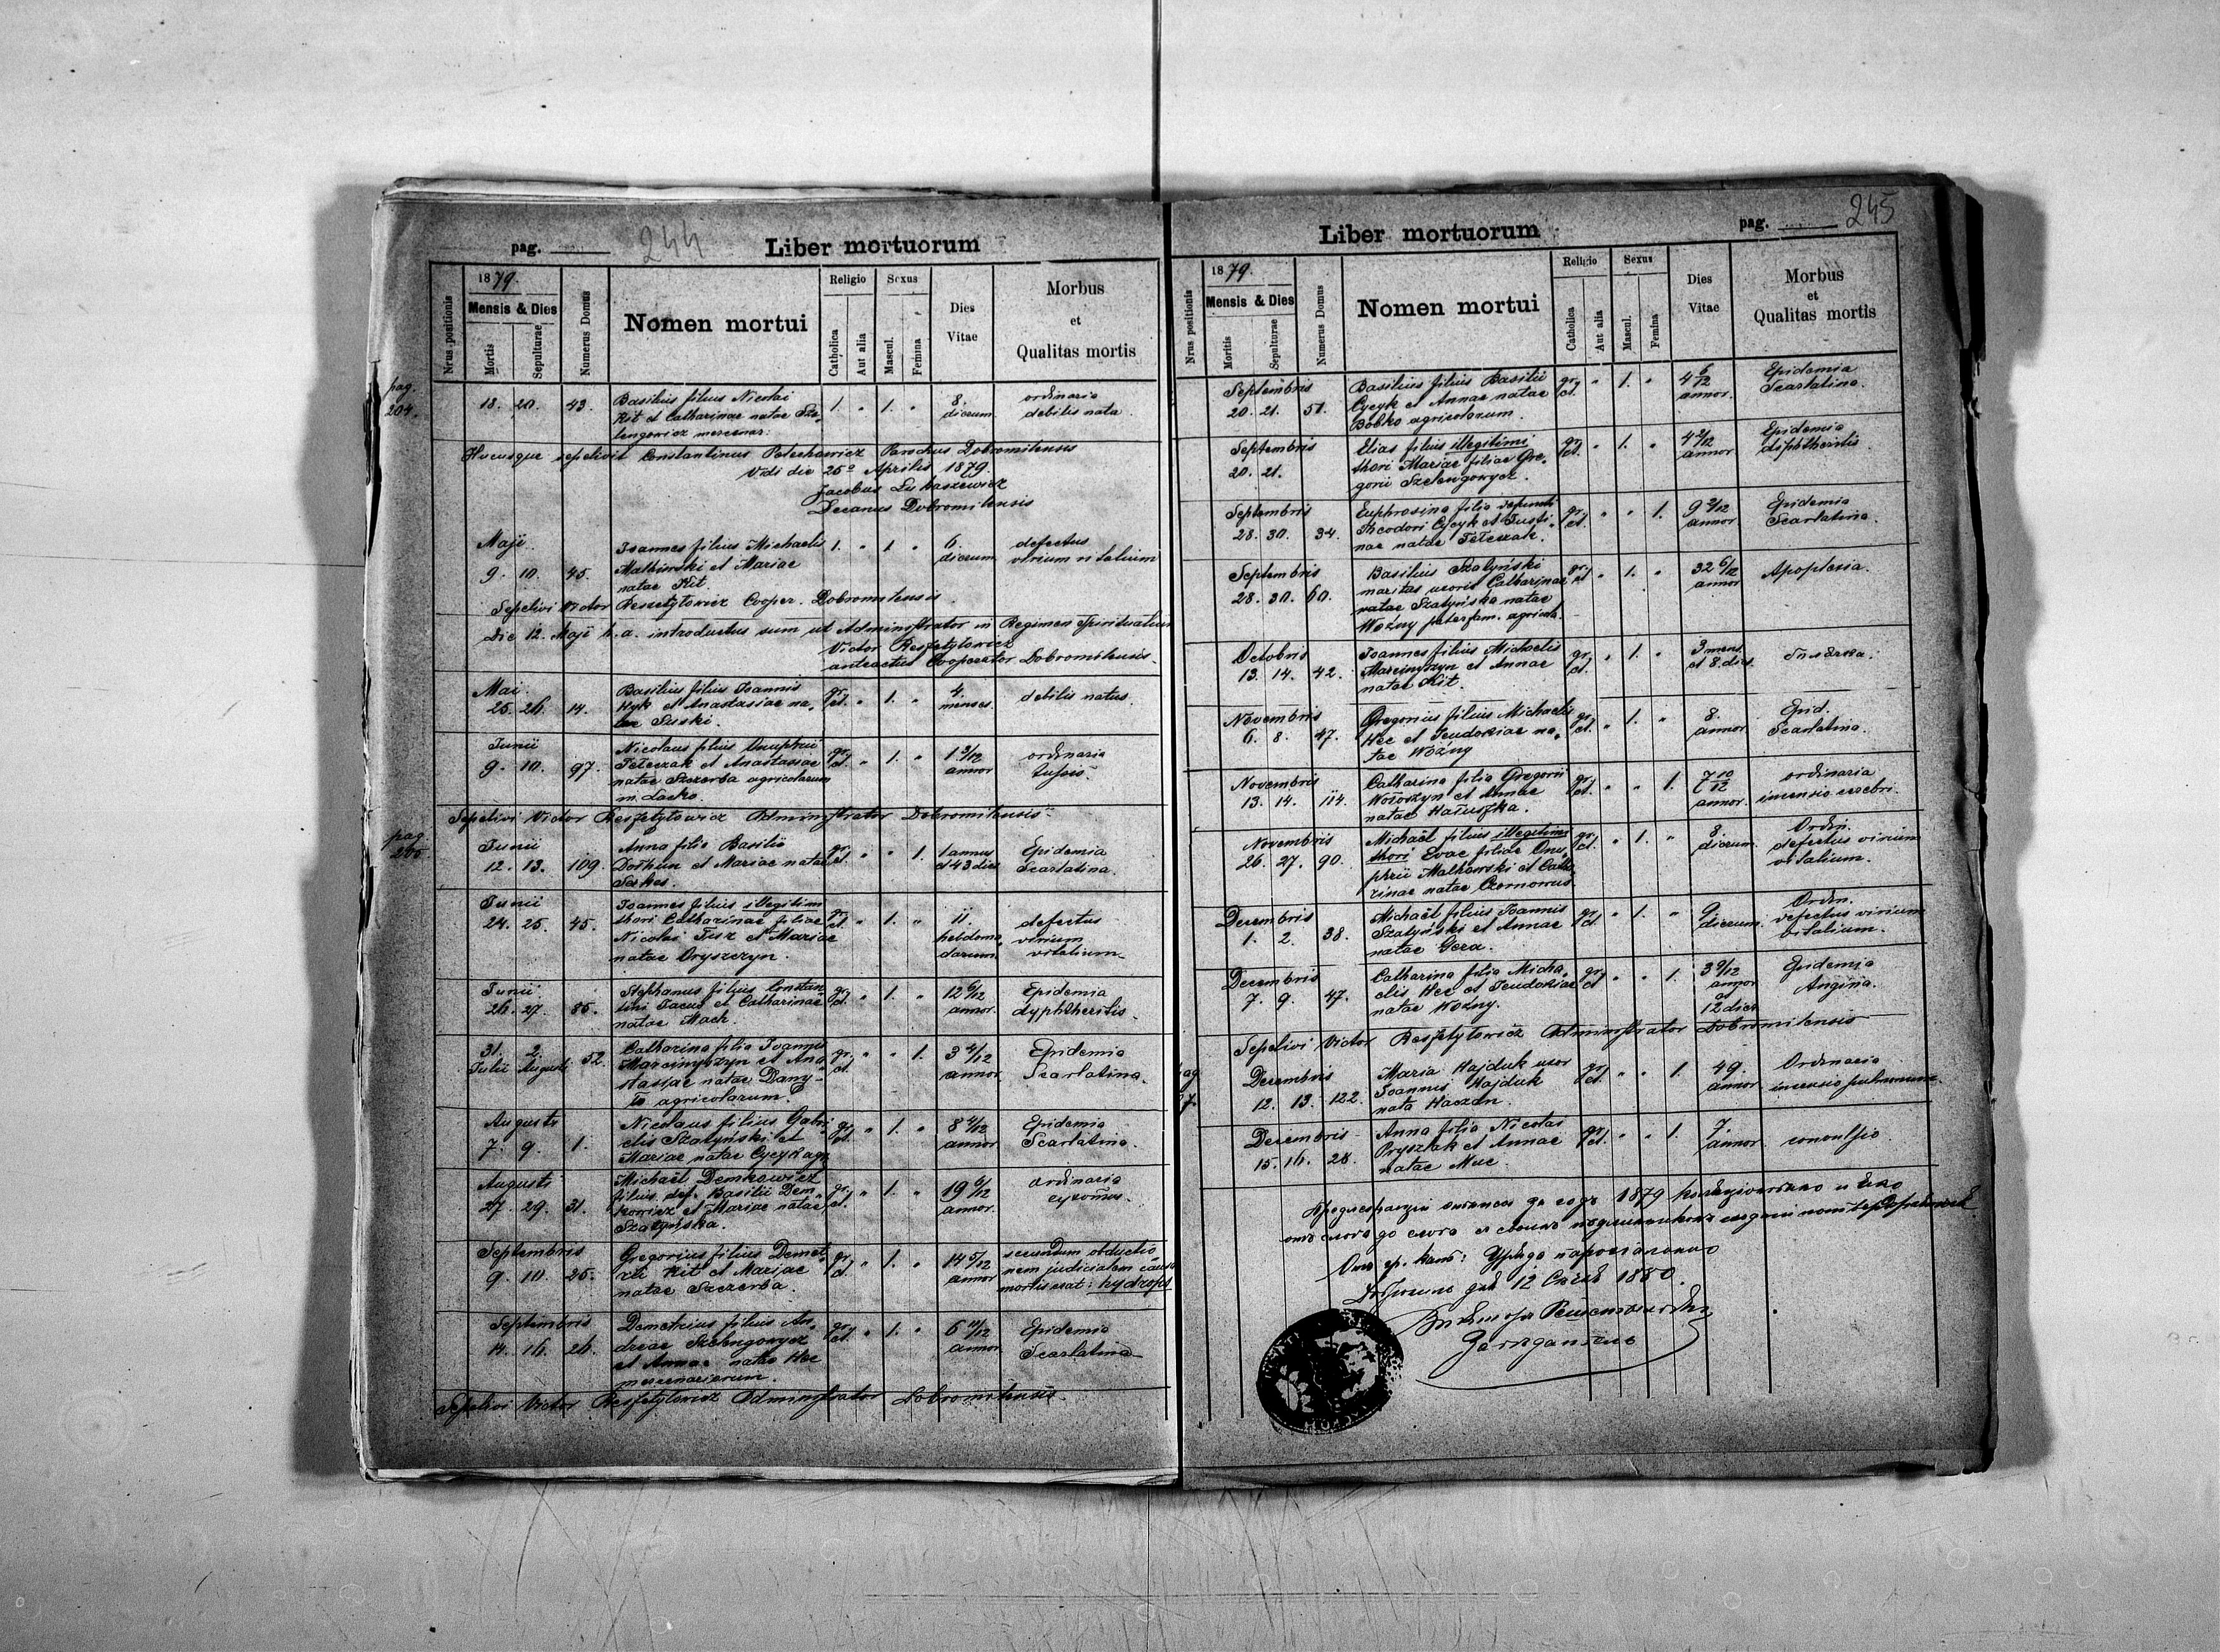 pag. 244
Liber mortuorum
1879.
Mensis & Dies
Nrus positionis
Mortis
Sepulturae
Numerus Domus
Nomen mortui
Religio
Catholica
Aut alia
Sexus
Mascul.
Femina
Dies
Vitae
Morbus
et
Qualitas mortis
pag.
204.
18. 20. 43.
Basilius filius Nicolai
Kit et Catharinae natae Sze-
lengowicz mercenar:
1. " 1. "
8.
dierum
ordinaria
debilis nata.
Hucusque sepelivit Constantinus Parochus Dobromilensis
Vidi die 25º Aprilis 1879.
Jacobus Lukaszewicz
Decanus Dobromilensis
Maji
9. 10. 45.
Joannes filius Michaelis
Malhowski et Mariae
natae Kit.
1. " 1 "
6.
dierum
defectus
virium vitalium
Sepelivi Victor Reszetylowicz Cooper. Dobromilensis.
Die 12. Maji h. a. introductus sum ut Administrator in Regimen Spiritualium
Victor Reszetylowicz
anteactus Cooperator Dobromilensis.
Mai.
25. 26. 14.
Basilius filius Joannis
Hyk et Anastasiae na-
tae
gr. ct. " 1. "
4.
menses.
debilis natus.
Junii
9. 10. 97.
Nicolaus filius Onuphrii
Peteczak et Anastasiae
natae Szczerba agricolarum
in Lacko.
gr. ct. " 1. "
1 3/12
annor
ordinaria
tussis.
Sepelivi Victor Reszetylowicz Administrator Dobromilensis.
pag.
205
Junii
12. 13. 109.
Anna filia Basilii
et Mariae natae
gr. ct. " " 1.
1 annus
et 43 dies
Epidemia
Scarlatina.
Junii
24. 25. 45.
Joannes filius illegitimi
thori Catharinae filiae
Nicolai et Mariae
natae Oryszczyn.
gr. ct. " 1. "
11.
hebdoma-
darum
defectus
virium
vitalium
Junii
26. 27. 85.
Stephanus filius Constan-
tini Pacus et Catharinae
natae Mach.
gr. ct. " 1. "
12 6/12
annor.
Epidemia
dyphtheritis.
31. 2.
Julii Augusti 52.
Catharina filia Joannis
Marcinyszyn et Ana-
stasiae natae Dany-
ło agricolarum.
gr. ct. " " 1.
3 4/12
annor.
Epidemia
Scarlatina.
Augusti
7. 9. 1.
Nicolaus filius Gabri-
elis Szatyński et
Mariae natae Cycyk agr.
gr. ct. " 1. "
8 4/12
annor
Epidemia
Scarlatina.
Augusti
27. 29. 31.
Michaël Demkowicz
filius def. Basilii Dem-
kowicz et Mariae natae
Szatyńska.
gr. ct. " 1. "
19 9/12
annor.
ordinaria
Septembris
9. 10. 25.
Gregorius filius Demet-
rii Kit et Mariae
natae Szczerba.
gr. ct. " 1. "
14 5/12
annor
secundum obductio-
nem judicialem causa
mortis erat: hydrops
Septembris
14. 16. 26.
Demetrius filius An-
dreae Szelengowycz
et Annae natae Hec
mercenariorum.
gr. ct. " 1. "
6 11/12
annor.
Epidemia
Scarlatina
Sepelivi Victor Reszetylowicz Administrator Dobromilensis.
Liber mortuorum
pag. 245
1879.
Mensis & Dies
Nrus positionis
Mortis
Sepulturae
Numerus Domus
Nomen mortui
Religio
Catholica
Aut alia
Sexus
Mascul.
Femina
Dies
Vitae
Morbus
et
Qualitas mortis
Septembris
20. 21. 51.
Basilius filius Basilii
Cycyk et Annae natae
Bobko agricolarum.
gr. ct. " 1. "
4 6/12
annor.
Epidemia
Scarlatina.
Septembris
20. 21.
Elias filius illegitimi
thori Mariae filiae Gre-
gorii Szelengowycz.
gr. ct. " 1. "
4 2/12
annor
Epidemia
diphtheritis.
Septembris
28. 30. 34.
Euphrosina filia defuncti
Theodori Cycyk et Justi-
nae natae Peteczak.
gr. ct. " " 1.
9 2/12
annor
Epidemia
Scarlatina.
Septembris
28. 30. 60.
Basilius Szatyński
maritus uxoris Catharinae
natae Szatyńska natae
Woźny paterfam. agricola.
gr. ct. " 1. "
32 6/12
annor
Apoplexia.
Octobris
13. 14. 42.
Joannes filius Michaelis
Marcinyszyn et Annae
natae Kit.
gr. ct. " 1. "
3 mens.
et 8. dies
Novembris
6. 8. 47.
Gregorius filius Michaelis
Hec et Eudoxiae na-
tae Woźny
gr. ct. " 1. "
8.
annor
Epid.
Scarlatina.
Novembris
13. 14. 114.
Catharina filia Gregorii
Wołoszyn et Annae
natae Hałuszka.
gr. ct. " " 1.
7 10/12
annor.
ordinaria
incensio cerebri.
Novembris
26. 27. 90.
Michaël filius illegitimi
thori Evae filiae Onu-
phrii Malhowski et Catha-
rinae natae Czornowus.
gr. ct. " 1. "
8.
dierum
Ordin.
defectus virium
vitalium.
Decembris
1. 2. 38.
Michaël filius Joannis
Szatyński et Annae
natae Gera.
gr. ct. " 1. "
9
dierum.
Ordin.
defectus virium
vitalium.
Decembris
7. 9. 47.
Catharina filia Micha-
elis Hec et Eudoxiae
natae Woźny.
gr. ct " " 1.
3 9/12
annor
et
12 dies
Epidemia
Angina.
Sepelivi Victor Reszetylowicz Administrator Dobromilensis
Decembris
12. 13. 122.
Maria Hajduk uxor
Joannis Hajduk
nata
gr. ct. " " 1.
49.
annor
Ordinaria
incensio pulmonum.
Decembris
15. 16. 28.
Anna filia Nicolai
Pryszlak et Annae
natae Muc.
gr. ct. " " 1.
7.
annor
convulsio
1879
12 1880.